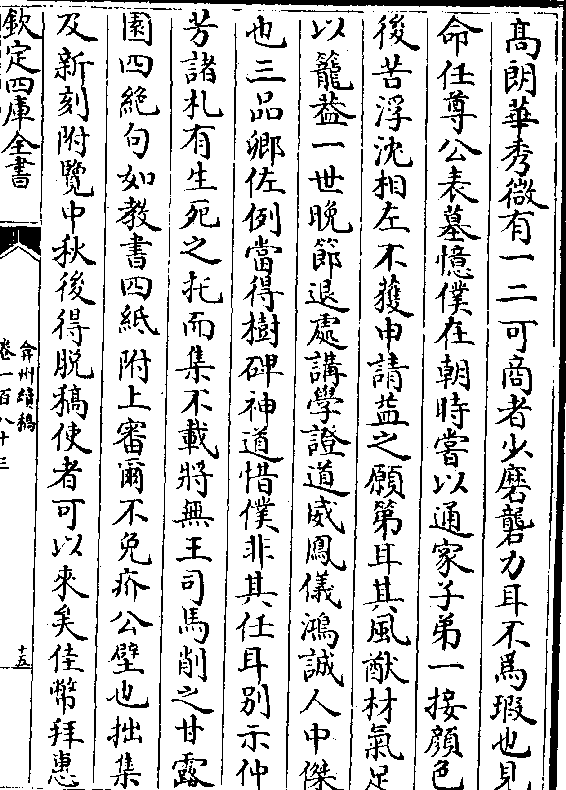 髙朗華秀微有一二可商者少磨礱力耳不爲瑕也見
命任尊公表墓憶僕在朝時嘗以通家子弟一接顔色
後苦浮沈相左不獲申請益之願第耳其風猷材氣足
以籠葢一世晚節退處講學證道威鳳儀鴻誠人中傑
也三品卿佐例當得樹碑神道惜僕非其任耳别示仲
芳諸札有生死之托而集不載將無王司馬削之甘露
園四絶句如教書四紙附上審爾不免疥公壁也拙集
及新刻附覽中秋後得脱稿使者可以來矣佳幣拜惠
欽定四庫全書
弇州續稿
卷一百八十三
十五